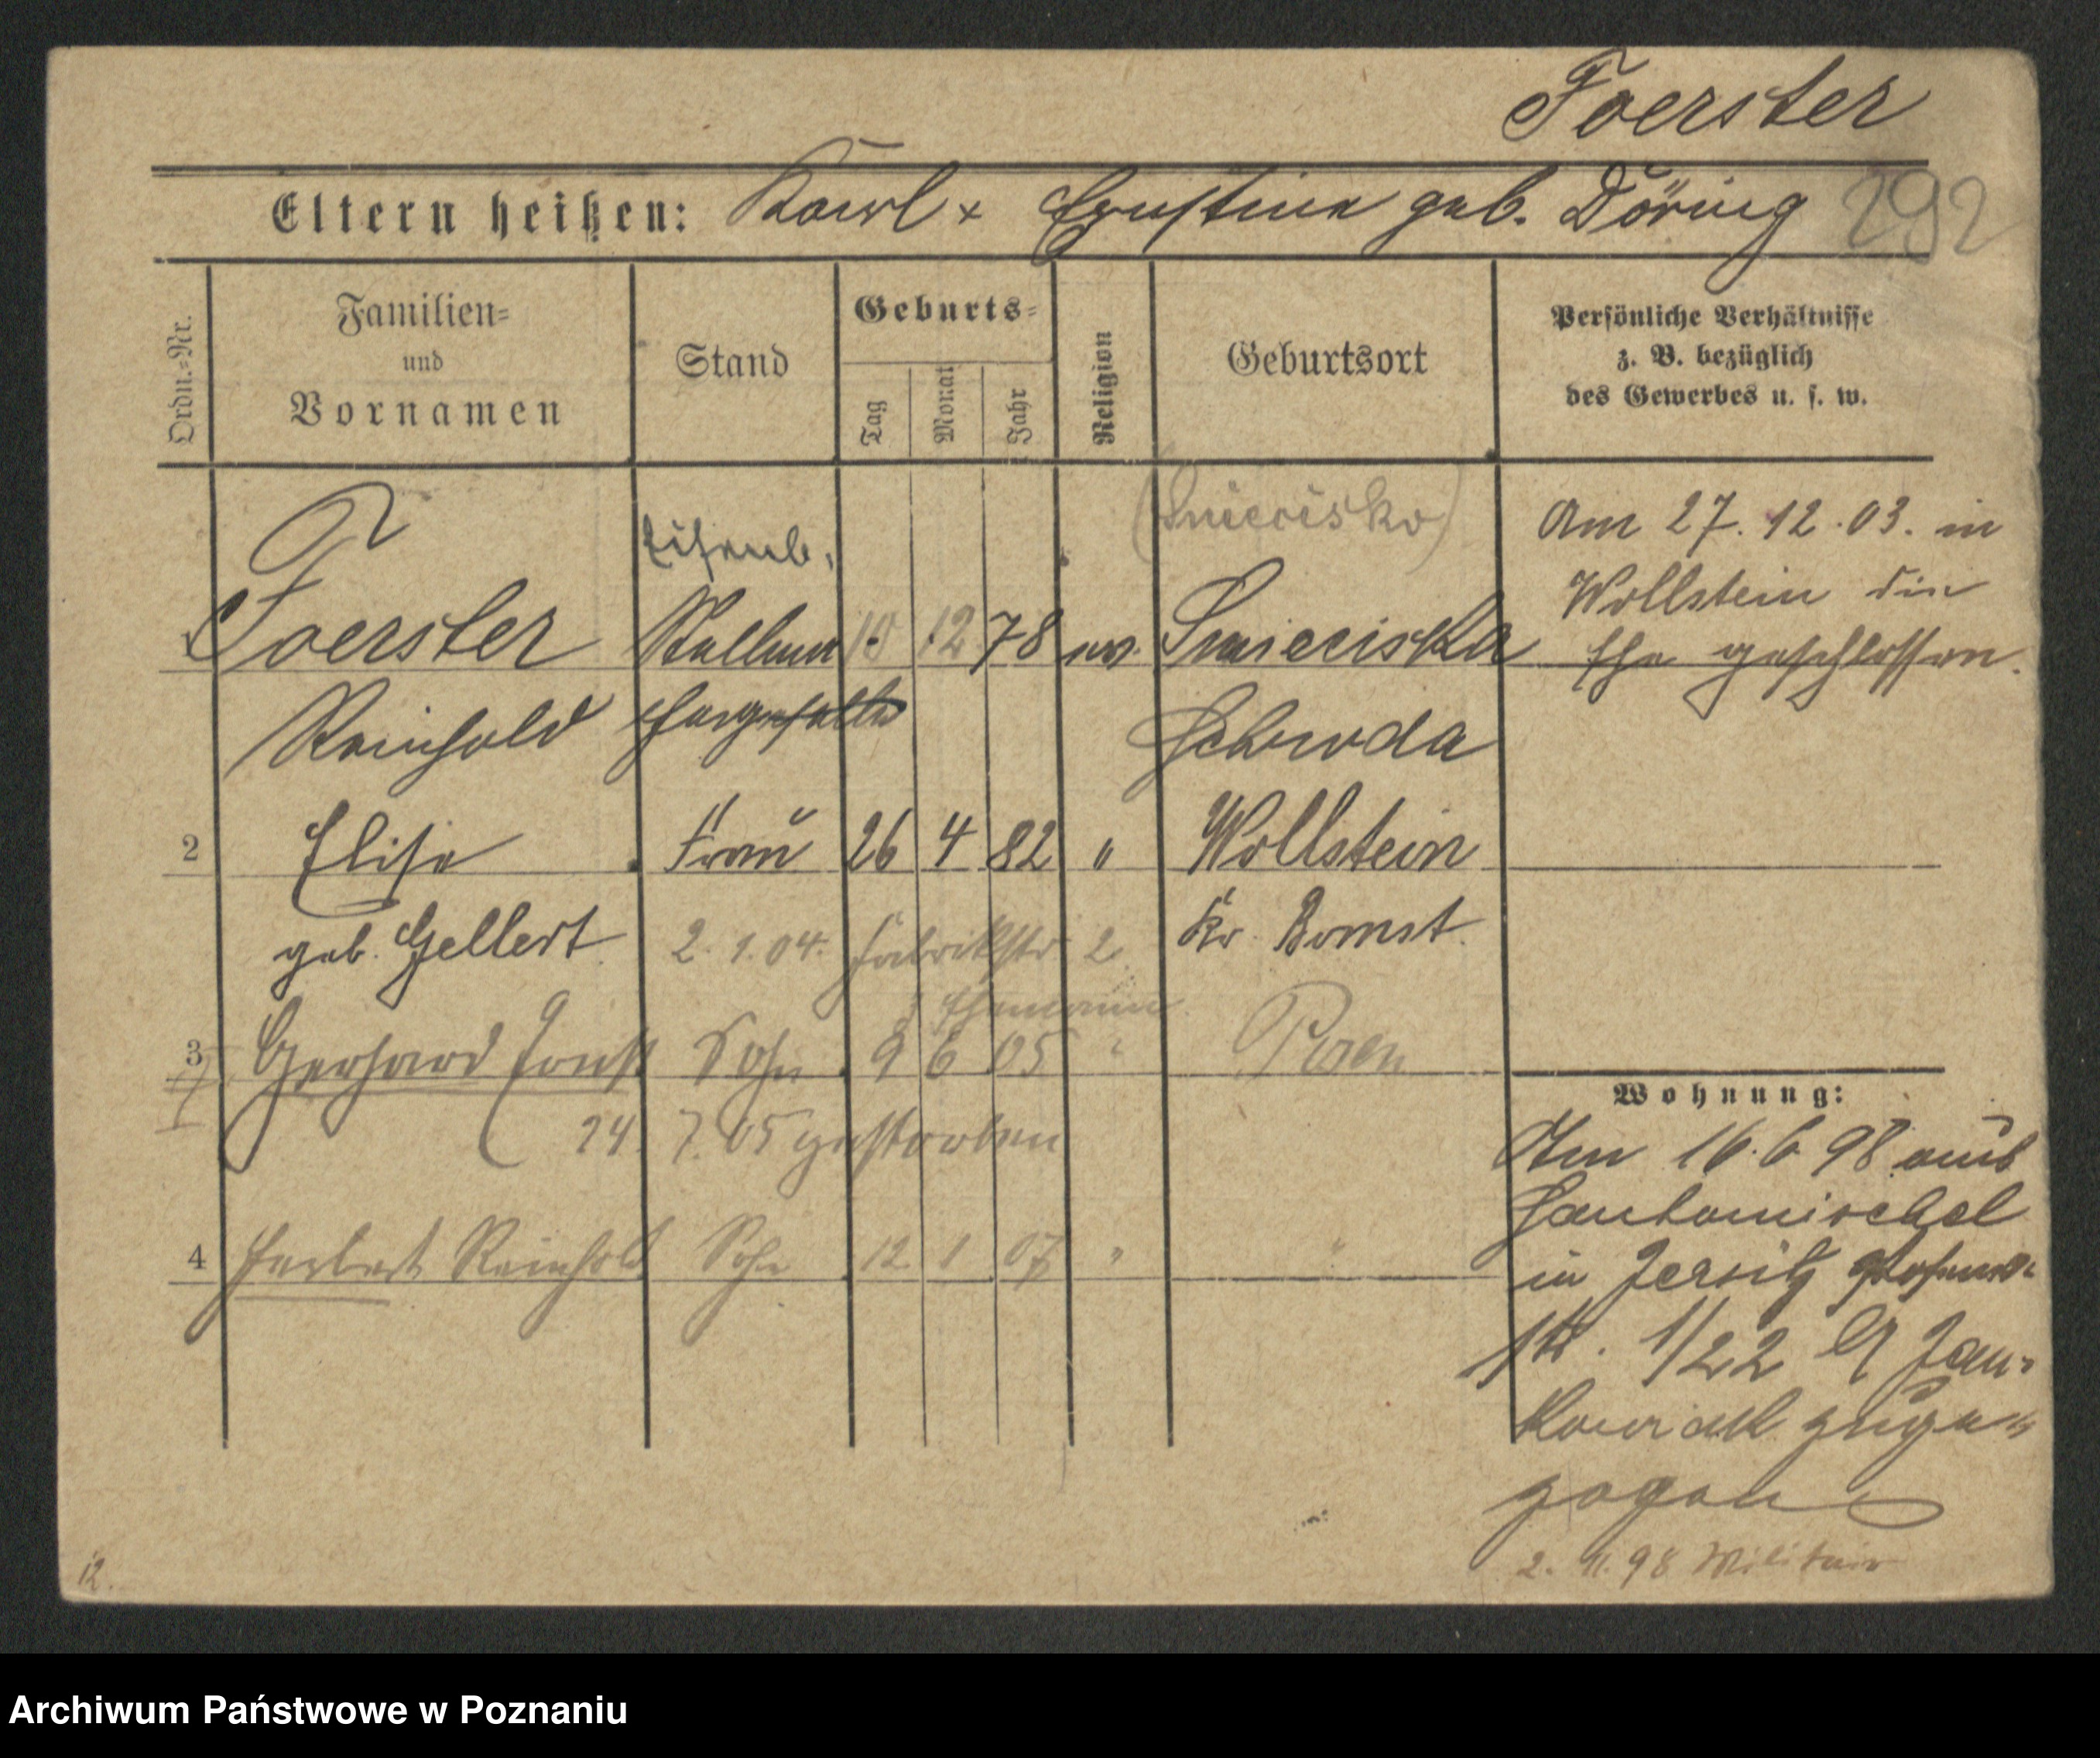 Foerster
Eltern heißen: Karl x Ernstine geb. Döring 292
Ordn.=Nr.
Familien=
und
Vornamen
Stand
Geburts=
Tag
Monat
Jahr
Religion
Geburtsort
Persönliche Verhältnisse
z. B. bezüglich
des Gewerbes u. s. w.
(Smiecisko)
Eisenb.
1 Foerster 10 12 78 ev. Smieciska
Reinhold Schroda
Am 27. 12. 03. in
Wollstein die
Ehe geschlossen.
2 Elise Frau 26 4 82 " Wollstein
geb. Gellert Kr. Bomst.
2. 1. 04. Fabrikstr 2
Ehemann
3 Gerhard Sohn 9 6 05 " Posen
24. 7. 05 gestorben
4 Herbert Reinhold Sohn 12 1 07 " "
Wohnung:
Am 16. 6 98 aus
in Jersitz
str. 1/22 Jan=
zuge=
zogen
2. 11. 98 Militair
12.
Archiwum Państwowe w Poznaniu